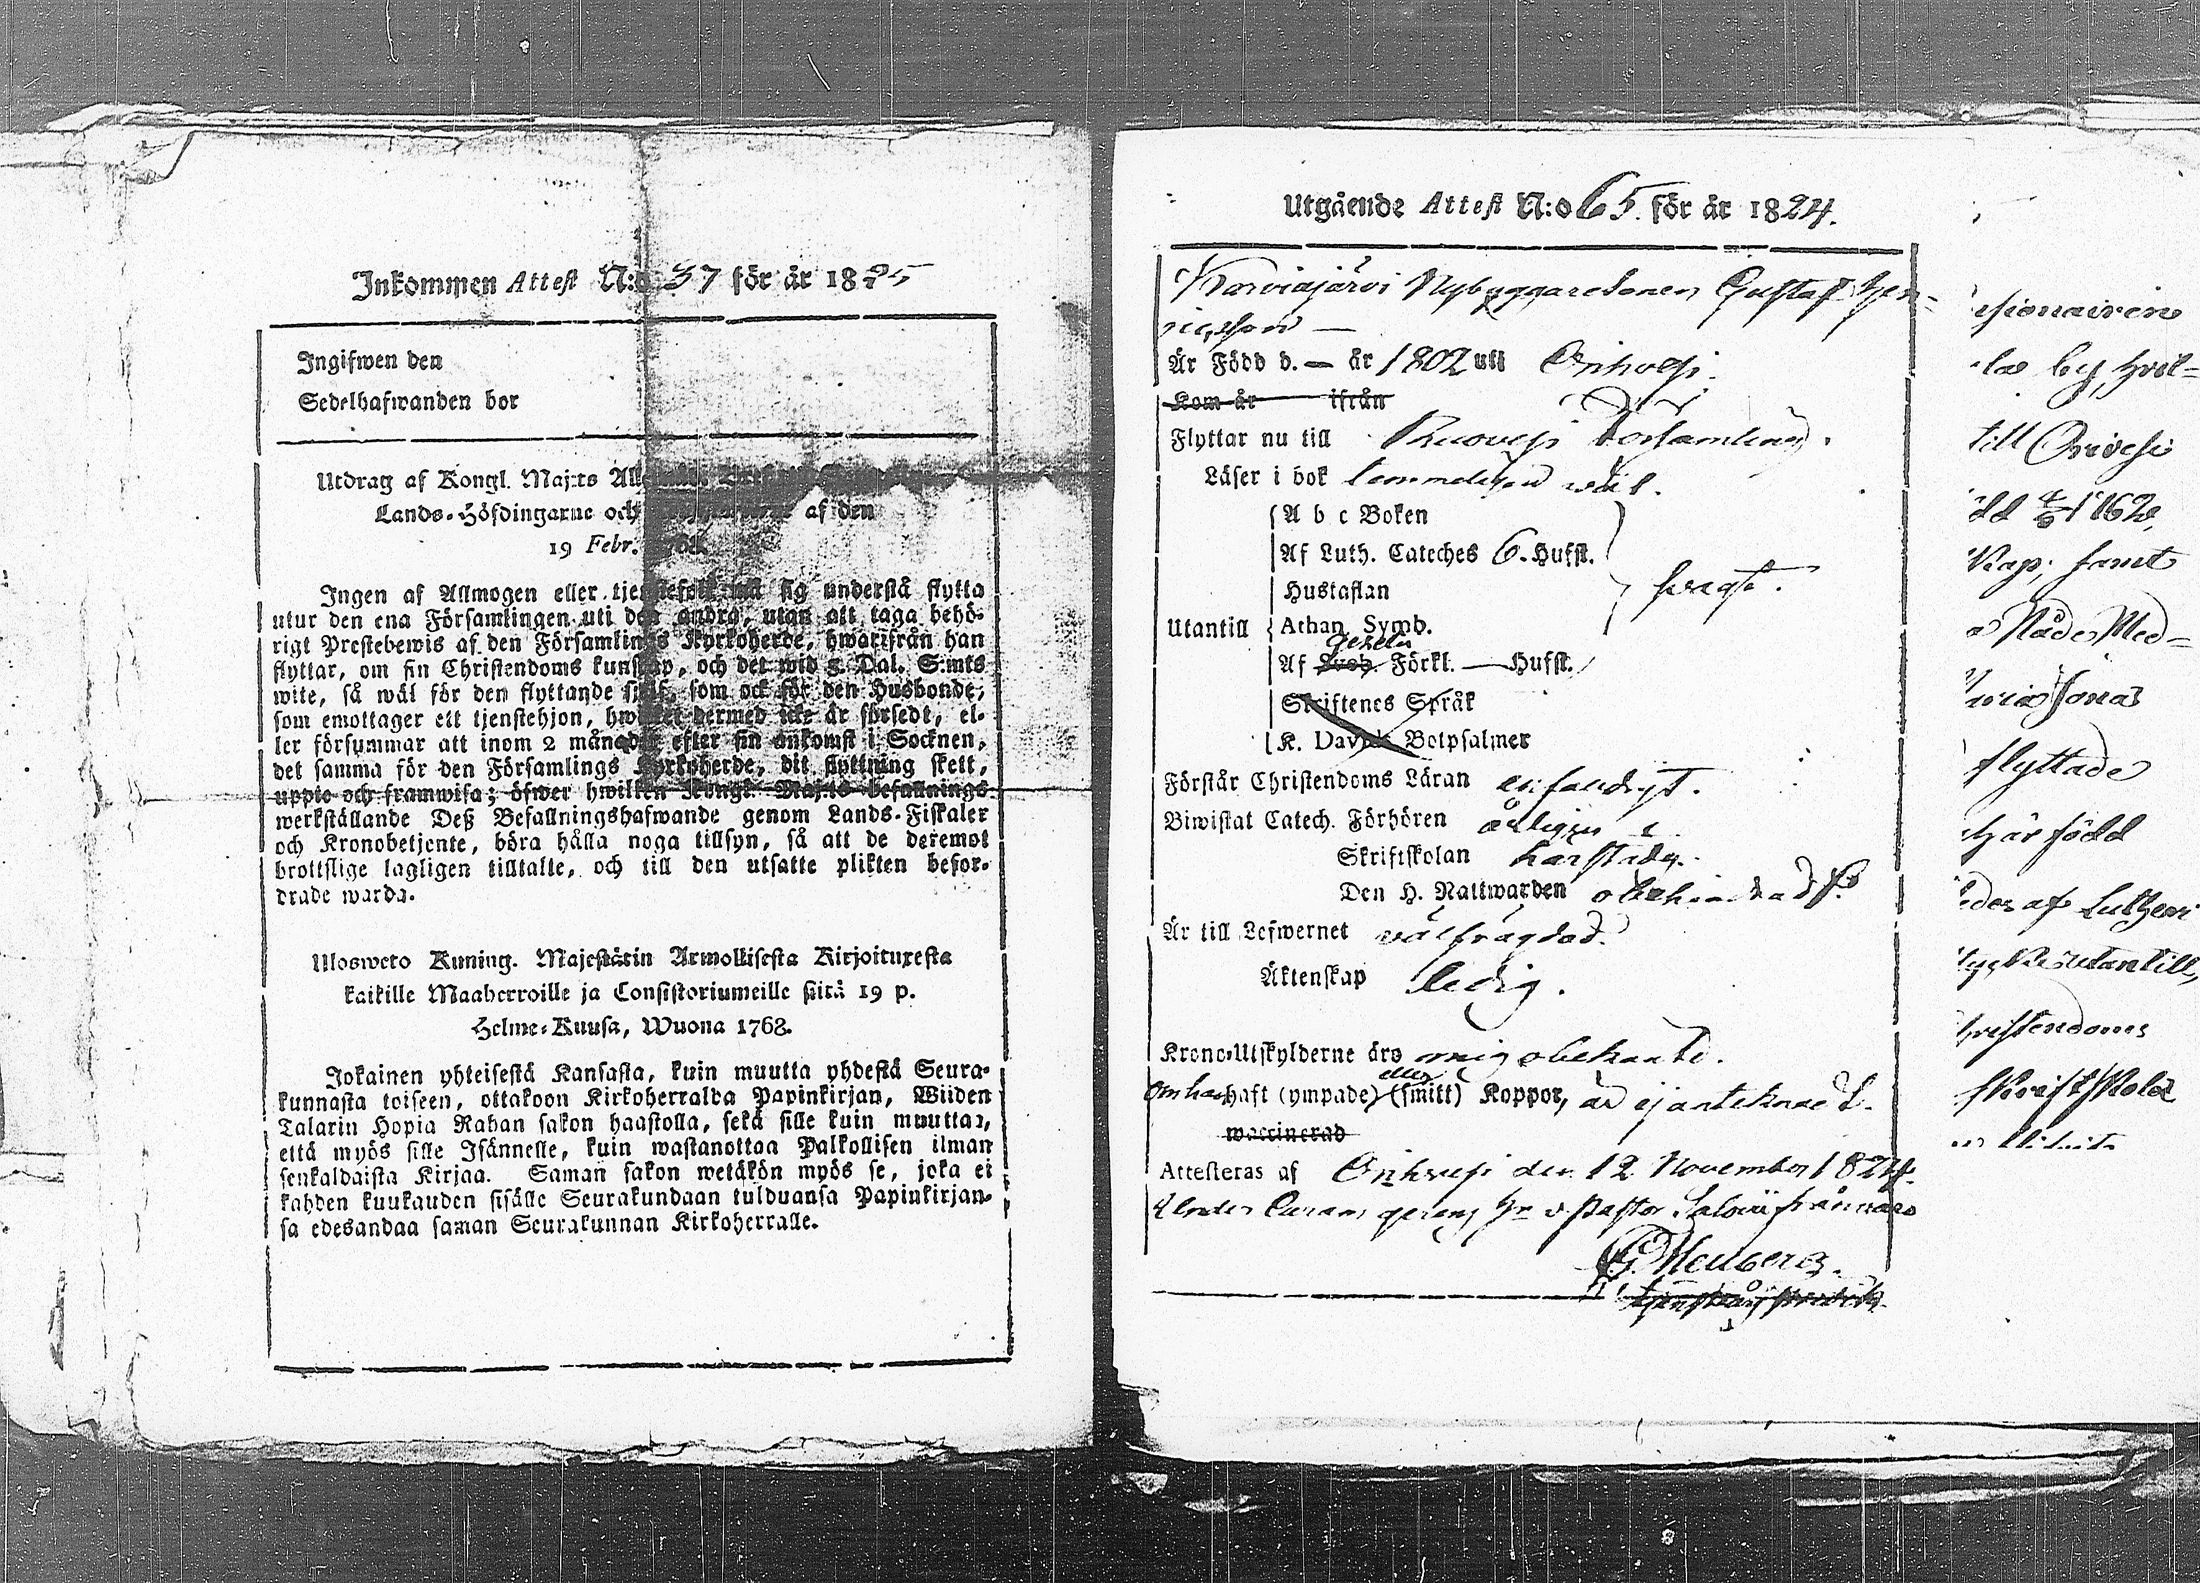 Inkommen Attest N:o 37 för år 1825
Ingifwen den
Sedelhafwanden bor
Utdrag af Kongl. Maj:ts
Lands-Höfdingarne och af den
19 Febr.
Ingen af Allmogen eller tjenstefolk må sig understå flytta
utur den ena Församlingen uti den andra, utan att taga behö-
rigt Prestebewis af den Församlings Kyrkoherde, hwarifrån han
flyttar, om sin Christendoms kunskap, och det wid 5 Dal. S:mts
wite, så wäl för den flyttande sjelf, som ock för den Husbonde,
som emottager ett tjenstehjon, hwilket dermed icke är försedt, el-
ler försummar att inom 2 månader efter sin ankomst i Socknen,
det samma för den Församlings Kyrkoherde, dit flyttning skett,
uppte och framwisa; öfwer hwilken Kongl. Maj:ts befallnings
werkställande Deß Befallningshafwande genom Lands-Fiskaler
och Kronobetjente, böra hålla noga tillsyn, så att de deremot
brottslige lagligen tilltalte, och till den utsatte plikten befor-
drade warda.
Ulosweto Kuning. Majestätin Armollisesta Kirjoituxesta
kaikille Maaherroille ja Consistoriumeille siitä 19 p.
Helme-Kuusa, Wuona 1768.
Jokainen yhteisestä Kansasta, kuin muutta yhdestä Seura-
kunnasta toiseen, ottakoon Kirkoherralda Papinkirjan, Wiiden
Talarin Hopia Rahan sakon haastolla, sekä sille kuin muuttaa,
että myös sille Isännelle, kuin wastanottaa Palkollisen ilman
senkaldaista Kirjaa. Saman sakon wetäkön myös se, joka ei
kahden kuukauden sisälle Seurakundaan tulduansa Papinkirjan-
sa edesandaa saman Seurakunnan Kirkoherralle.
Utgående Attest N:o 65. för år 1824.
Karviajärvi Nybyggaresonen Gustaf Hen-
ricsson —
Är Född d. — år 1802 uti Orihvesi.
Kom år ifrån
Flyttar nu till Ruovesi Församling.
Läser i bok temmeligen wäl.
A b c Boken
Af Luth. Cateches 6. Hufst.
Hustaflan
Utantill Athan. Symb.
Af Sveb. Förkl. — Hufst.
Skriftenes Språk
K. Davids Botpsalmer
Förstår Christendoms Läran enfaldigt.
Biwistat Catech. Förhören årligen
Skriftskolan härstädes.
Den H. Nattwarden obehindrad
Är till Lefwernet välfrägdad.
Äktenskap ledig.
Krono-Utskylderne äro mig obekante.
Om han haft (ympade) eller (smitt) Koppor, är ej anteknadt.
waccinerad
Attesteras af Orihvesi den 12 November 1824.
Pastor frånvaro
till Orivesi
Nåde Med-
Jonas
flyttade
här född
af Lutheri
utantill,
hristendoms
skriftskola